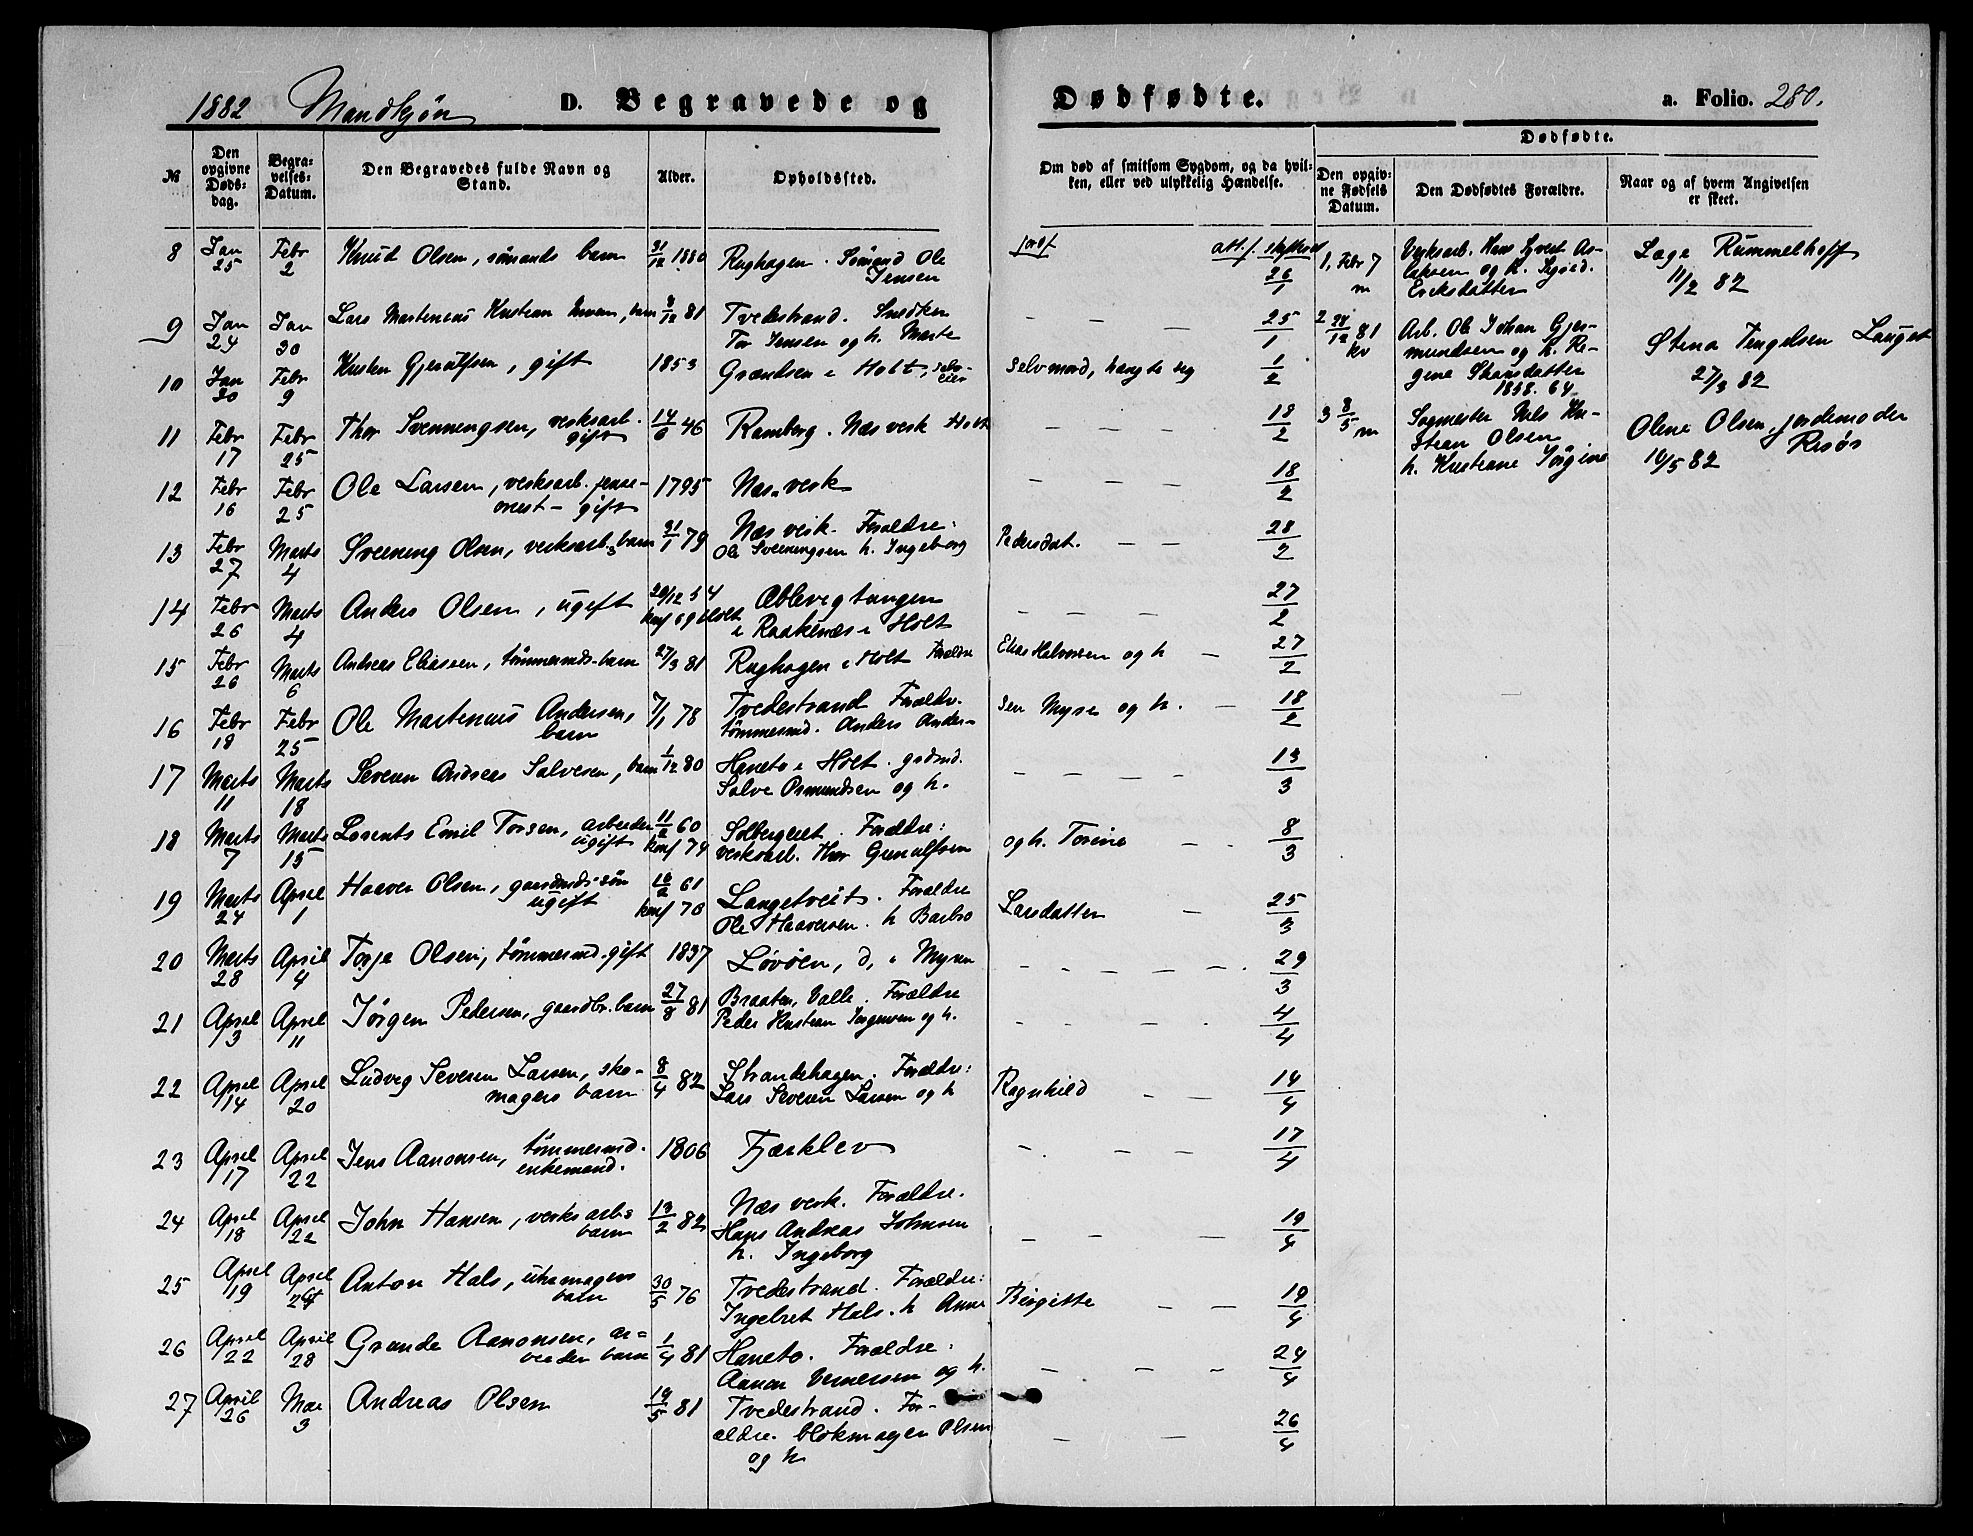 1882 Mandkjøn D. Begravede og Dødfødte. a. Folio. 280.
Dødfødte.
№
Den opgivne Døds-dag.
Begra-velses-Datum.
Den Begravedes fulde Navn og Stand.
Alder.
Opholdssted.
Om død af smitsom Sygdom, og da hvil-
ken, eller ved ulykkelig Hændelse.
Den opgiv-ne Fødsels Datum.
Den Dødfødtes Forældre.
Naar og af hvem Angivelsen er skeet.
8 Jan 25 Febr 2 Knud Olsen, sømands barn 31/12 1880 Rughagen. Sømand Ole Jensen 26/1
9 Jan 24 Jan 30 Lars Martenius Kristian barn 8/12 81 Tvedestrand. Snedker
Tor Jensen og h. Marte — — — 25/1
10 Jan 30 Febr 9 Kristen Gjerulfsen, gift 1853 Grændsen i Holt, selv-eier selvmord, hængte seg 1/2
11 Febr 17 Febr 25 Thor Svenningsen, verksarb. gift 14/6 46 Ramberg. Næs verk Holt — — — 18/2
12 Febr 16 Febr 25 Ole Larsen, verksarb. gift 1795 Næs verk — — — 18/2
13 Febr 27 Marts 4 Svenning Olsen, verksarb. barn 31/1 79 Næs verk. Forældre:
Ole Svenningsen h. Ingeborg Pedersdat. — — 28/2
14 Febr 26 Marts 4 Anders Olsen, ugift 20/12 54
konf 69 Holt Æblevigtangen
i Raakenæs i Holt — — — 27/2
15 Febr 26 Marts 6 Andreas Eliassen, tømmermds. barn 27/3 81 Rughagen i Holt Forældre Elias Halvorsen og h — 27/2
16 Febr 18 Febr 25 Ole Martenius Andersen, barn 7/1 78 Tvedestrand Forældr.
tømmermd. Anders Ander-
sen Myre og h. — 18/2
17 Marts 11 Marts 18 Severin Andreas Salvesen, barn 1/12 80 Haneto i Holt. grdmd.
Salve Osmundsen og h. — — — — 13/3
18 Marts 7 Marts 15 Lorents Emil Torsen, arbeider ugift 11/2 60
konf 74 Solbergeiet. Forældre:
verksarb. Thor Gunulfsen og h. Torine — . 8/3
19 Marts 24 April 1 Haaver Olsen, gaardmds søn ugift 16/2 61
konf 76 Langetveit. Forældre
Ole Haaversen. h Barbro Larsdatter — 25/3
20 Marts 28 April 4 Torje Olsen, tømmermd. gift 1837 Løvøen, d. i Myren — — — — — . 29/3
21 April 3 April 11 Jørgen Pedersen, gaardbr. barn 27/8 81 Braaten, Valle. Forældre
Peder Kristian Jørgensen og h. 4/4
22 April 14 April 20 Ludvig Severin Larsen, sko-
magers barn 8/4 82 Strandehagen. Forældre:
Lars Severin Larsen og h Ragnhild — — 14/4
23 April 17 April 22 Jens Aanonsen, tømmermd.
enkemand. 1806 Fjærklev — . — — 17/4
24 April 18 April 22 John Hansen, verksarb. barn 13/2 82 Næs verk. Forældre.
Hans Andreas Johnsen
h. Ingeborg — — — 19/4
25 April 19 April 24 Anton Hals, uhrmagers barn 30/5 76 Tvedestrand. Forældre:
Ingebret Hals. h Anne Birgitte — — 19/4
26 April 22 April 28 Grunde Aanonsen, ar-
beider barn 1/4 81 Haneto. Forældre:
Aanon Vernersen og h. — — — 24/4
27 April 26 Mai 3 Andreas Olsen 19/5 81 Tvedestrand. For-
ældre. blokmager Olsen
og h — — 26/4
1, Febr 7 m Verksarb. Hans Sjvert As-
laksen og h. Sigrid.
Eriksdatter Læge Rummelhoff
11/2 82
2 28/12 81 kv Arb. Ole Johan Gjer-
mundsen og h. Re-
gine Stiansdatter
1858. 64. Stina Tengelsen Lauget
27/3 82
3 8/5 m Sagmester Nils Kri-
stian Olsen
h. Kristiane Jørgine Olene Olsen, jordemoder
Risør
16/5 82